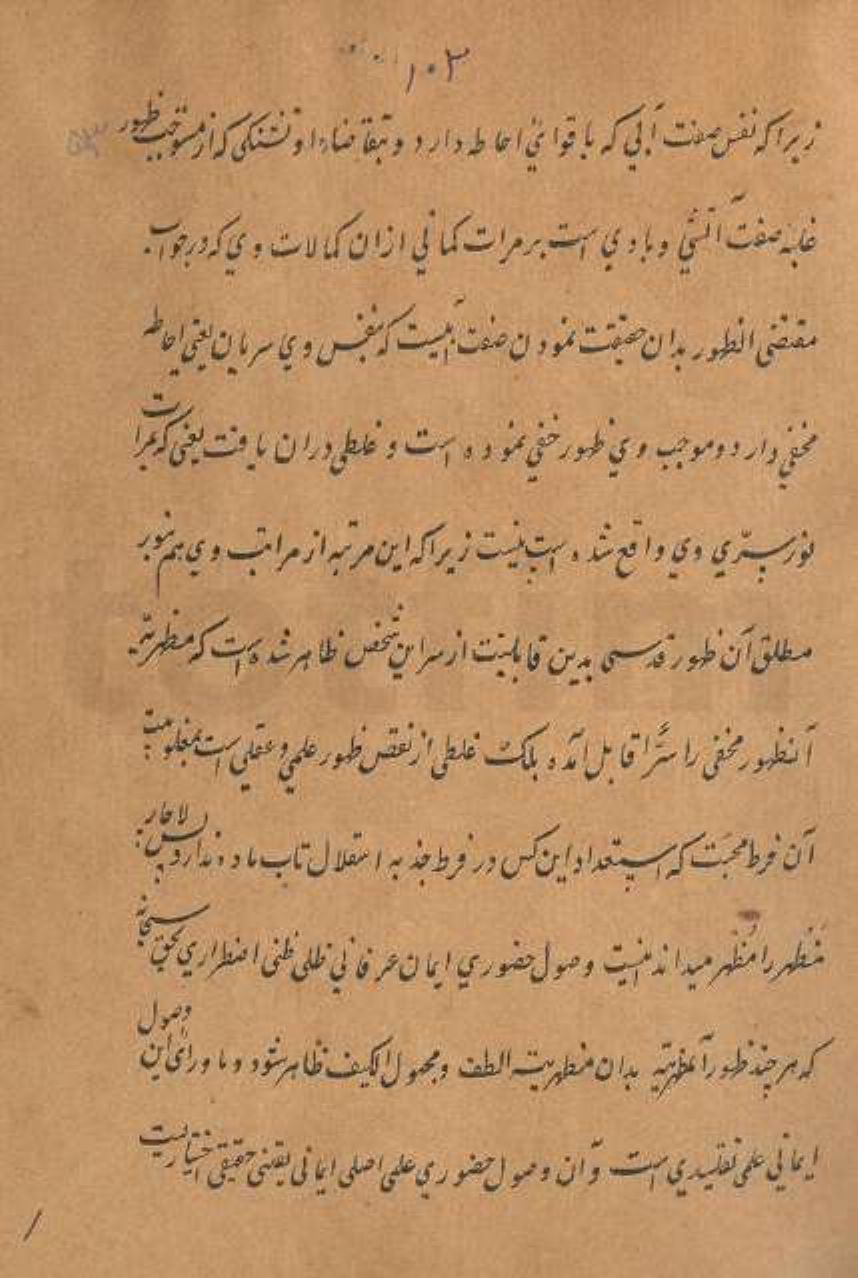 ۱۰۳
زیرا که نفس صفت آبی که با قوائی احاطه دارد و بتقاضاء او تشنکی که از مستوجب ظهور
غلبه صفت آتشی و بادی است بر مراتب کمائی ازان کمالات وی که در جواب
مقتضی الظهور بدان حقیقت نمودن صفت آبیست که بنفس وی سریان یعنی احاطه
مخفی دارد و موجب وی ظهور خفی نموده است و غلطی دران یافت یعنی که بمرات
نور سرّی وی واقع شده است نیست زیرا که این مرتبه از مراتب وی هم بنور
مطلق آن ظهور قدسی بدین قابلیت از سر این شخص ظاهر شده است که مظهریّه
آنظهور مخفی را سرّاً قابل آمده بلک غلطی از نقص ظهور علمی و عقلی است بمغلوبیت
آن فرط محبت که استعداد این کس در فرط جذبه استقلال تاب ماده ندارد پس لاچار
مَظهر را مُظهر میداند اینست وصول حضوری ایمان عرفانی ظلی ظنی اضطراری بحق سبحانه
که هر چند ظهور آنمظهریه بدان مظهریت الطف و مجهول الکیف ظاهر شود و ماورای این وصول
ایمانی علمی تقلیدی است و آن وصول حضوری علمی اصلی ایمانی یقینی حقیقی اختیاریست